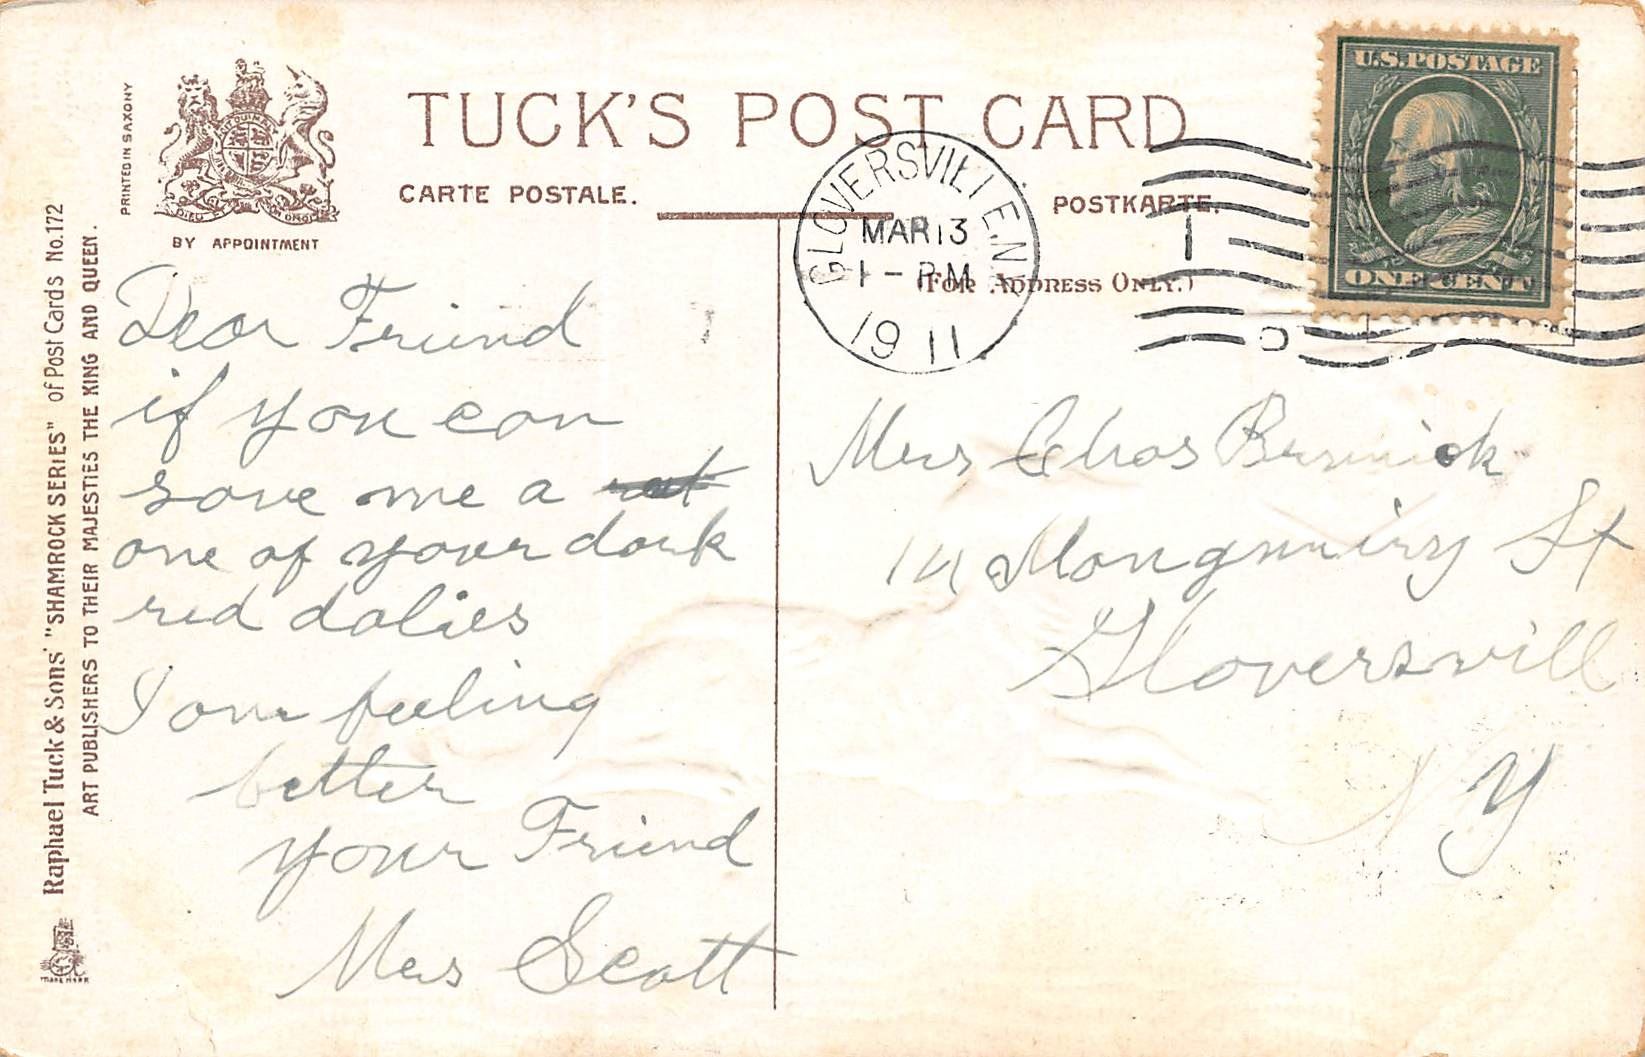 PRINTED IN SAXONY
BY APPOINTMENT
TUCK'S POST CARD
CARTE POSTALE.
POSTKARTE.
(FOR ADDRESS ONLY.)
Raphael Tuck & Sons' "SHAMROCK SERIES" of Post Cards No. 172
ART PUBLISHERS TO THEIR MAJESTIES THE KING AND QUEEN.
TRADE MARK
GLOVERSVILLE, N.
MAR 13
1 - PM
1911
1
U.S. POSTAGE
ONE CENT
Dear Friend
if you can
save me a
one of your dark
red dalies
I am feeling
better
your Friend
Mrs Scott
Mrs Chas
St
Gloversvill
N Y